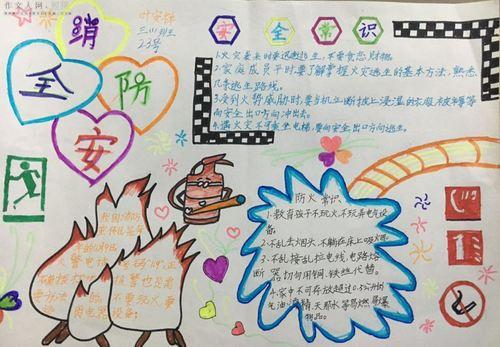 作文人网
叶安
三(1)班
23号
消
全 防
安
安全常识
1.火灾袭来时要迅速逃生,不要贪恋财物。
2.家庭成员平时要了解掌握火灾逃生的基本方法,熟悉
几条逃生路线。
3.受到火势威胁时,要当机立断披上浸湿的衣服、被褥等
向安全出口方向冲出去。
4.遇火灾不可乘坐电梯,要向安全出口方向逃生。
防火常识
1.教育孩子不玩火,不玩弄电气设
备。
2.不乱丢烟头,不躺在床上吸烟。
3.不乱接乱拉电线,电路熔
断器切勿用铜、铁丝代替。
4.家中不可存放超过0.5公升的
汽油、酒精、天那水等易燃易爆
物品。
我国消防
宣传日是每
年的11月9日
火警电话
119